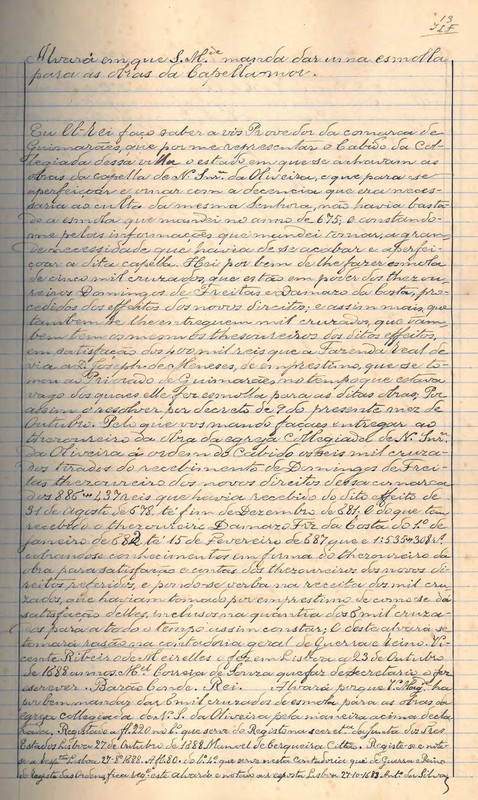 13
Alvará em que S. M.de manda dar uma esmolla
para as obras da Capella-mor.
Eu El-Rei faço saber a vós Provedor da comarca de
Guimarães, que por me representar o Cabido da Col-
legiada dessa villa o estado em que se achavam as
obras da capella de N. Snr.ª da Oliveira, e que para se
aperfeiçoar e ornar com a decencia que era neces-
saria ao culto da mesma Senhora, não havia basta-
do a esmola que mandei no anno de 675; e constando-
me pelas informações que mandei tomar, a gran-
de necessidade que havia de se acabar e aperfei-
çoar a dita capella. Hei por bem de lhe fazer esmola
de cinco mil cruzados, que estão em poder dos thezou-
reiros Domingos de Freitas e Damazo da Costa, pro-
cedidos dos effeitos dos novos direitos; e assim mais, que
tambem se lhe entreguem mil cruzados, que
tambem os mesmos thesoureiros dos ditos effeitos,
em satisfação dos 400 mil reis que a Fazenda real de-
via a D. Joseph de Meneses, de emprestimo, que se to-
mou ao Priorado de Guimarães, no tempo que estava
vago dos quaes elle fez esmola para as ditas obras; Por
assim o resolver por decreto de 9 do presente mez de
Outubro. Pelo que vos mando façaes entregar ao
thezoureiro da obra da egreja Collegiada de N. Snr.ª
da Oliveira á ordem do Cabido os seis mil cruza-
dos tirados do recebimento de Domingos de Frei-
tas thezoureiro dos novos direitos dessa comarca
dos 885 437 reis que havia recebido do dito effeito de
31 de Agosto de 678 té fim de Dezembro de 681, e do que tem
recebido o thezoureiro Damazo Frz da Costa do 1.º de
janeiro de 682 té 15 de Fevereiro de 687 que é 1:535 308 r.s
cobrando-se conhecimentos em forma do thezoureiro da
obra para satisfação e contas dos thezoureiros dos novos di-
reitos referidos, e pondo-se verba na receita dos mil cru-
zados, que haviam tomado por emprestimo de como se dá
satisfação delles, inclusos na quantia dos 6 mil cruza-
dos para a todo o tempo assim constar; E deste alvará se
tomará rasão na contadoria geral de Guerra e Reino. Vi-
cente Ribeiro de Meirelles o fez em Lisboa a 23 de Outubro
de 1688 annos. M.el Correia de Souza que faz de secretario o fez
escrever. Barão Conde. Rei. Alvará porque V. Mag.de ha
por bem mandar dar 6 mil cruzados de esmola para as obras da
egreja collegiada de N. S. da Oliveira pela maneira acima decla-
rada. Registado a fl. 220 no L.º que serve de Registo na secret.ª da Junta dos Tres
Estados Lisboa 27 de Outubro de 1688. Manoel de Cerqueira